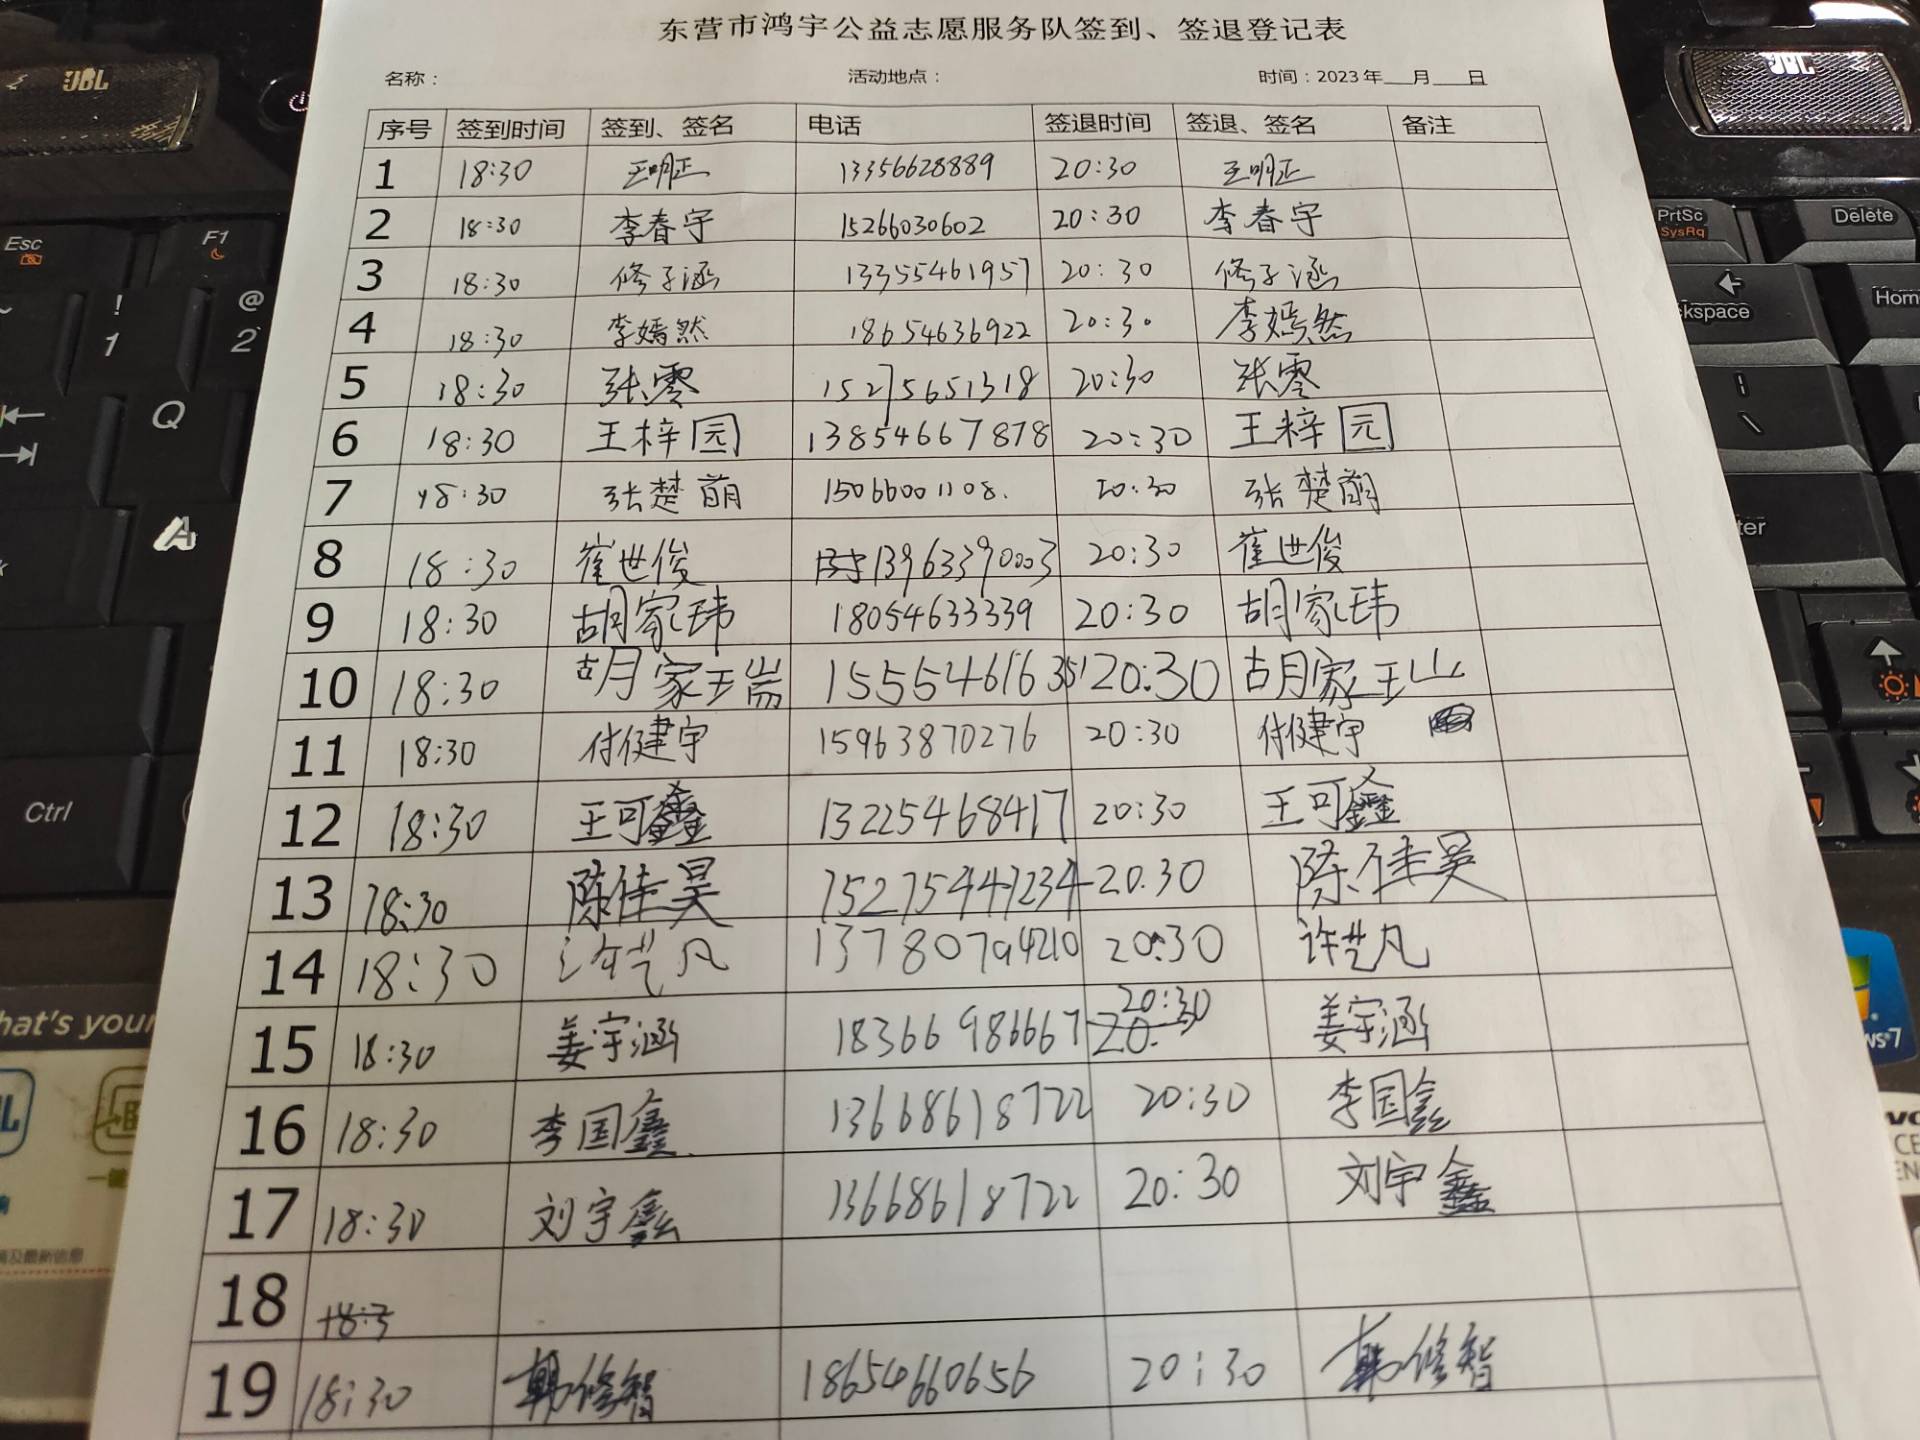 东营市鸿宇公益志愿服务队签到、签退登记表
名称： 活动地点： 时间：2023年___月___日
序号 签到时间 签到、签名 电话 签退时间 签退、签名 备注
1 18:30 王明正 13356628889 20:30 王明正
2 18:30 李春宇 15266030602 20:30 李春宇
3 18:30 修子涵 13355461957 20:30 修子涵
4 18:30 李嫣然 18654636922 20:30 李嫣然
5 18:30 张零 15275651318 20:30 张零
6 18:30 王梓园 13854667878 20:30 王梓园
7 18:30 张楚萌 15066001108. 20:30 张楚萌
8 18:30 崔世俊 13963390003 20:30 崔世俊
9 18:30 胡家玮 18054633339 20:30 胡家玮
10 18:30 胡家瑞 15554616351 20:30 胡家王山
11 18:30 付健宇 15963870276 20:30 付健宇
12 18:30 王可鑫 13225468417 20:30 王可鑫
13 18:30 陈佳昊 15275447234 20:30 陈佳昊
14 18:30 许艺凡 13780794210 20:30 许艺凡
15 18:30 姜宇涵 18366986667 20:30 姜宇涵
16 18:30 李国鑫 13668618722 20:30 李国鑫
17 18:30 刘宇鑫 13668618722 20:30 刘宇鑫
18 18:3
19 18:30 韩修智 18654660656 20:30 韩修智
JBL
JBL
Esc
F1
!
1
@
2
Q
A
Ctrl
PrtSc
SysRq
Delete
Hom
kspace
ter
hat's your
Windows 7